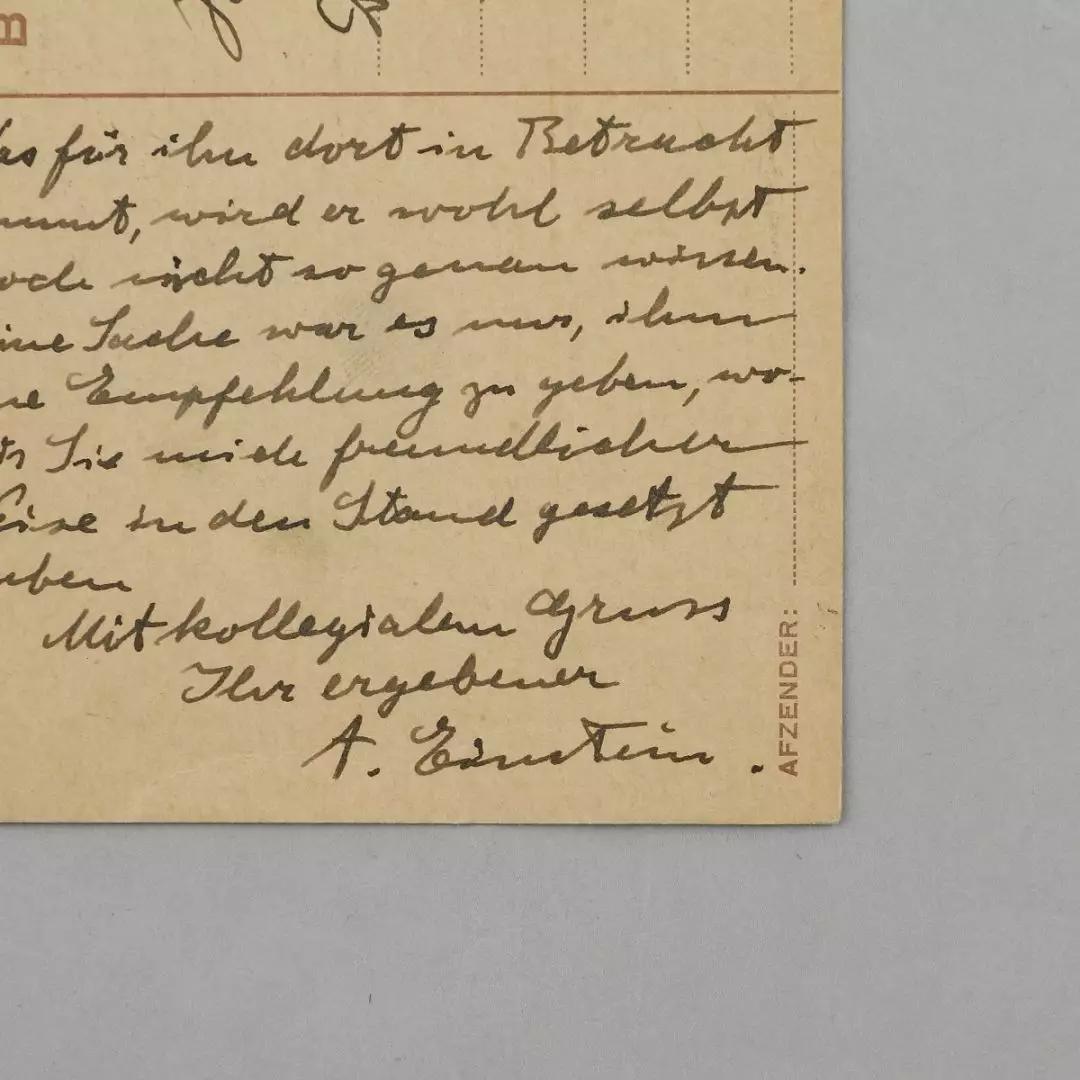 m
das für ihn dort in Betracht
mmt, wird er wohl selbst
och nicht so genau wissen.
ine Sache war es nur, ihm
ne Empfehlung zu geben, wo-
Sie mich freundlicher
eise in den Stand gesetzt
aben
Mit kollegialem Gruss
Ihr ergebener
A. Einstein.
AFZENDER: